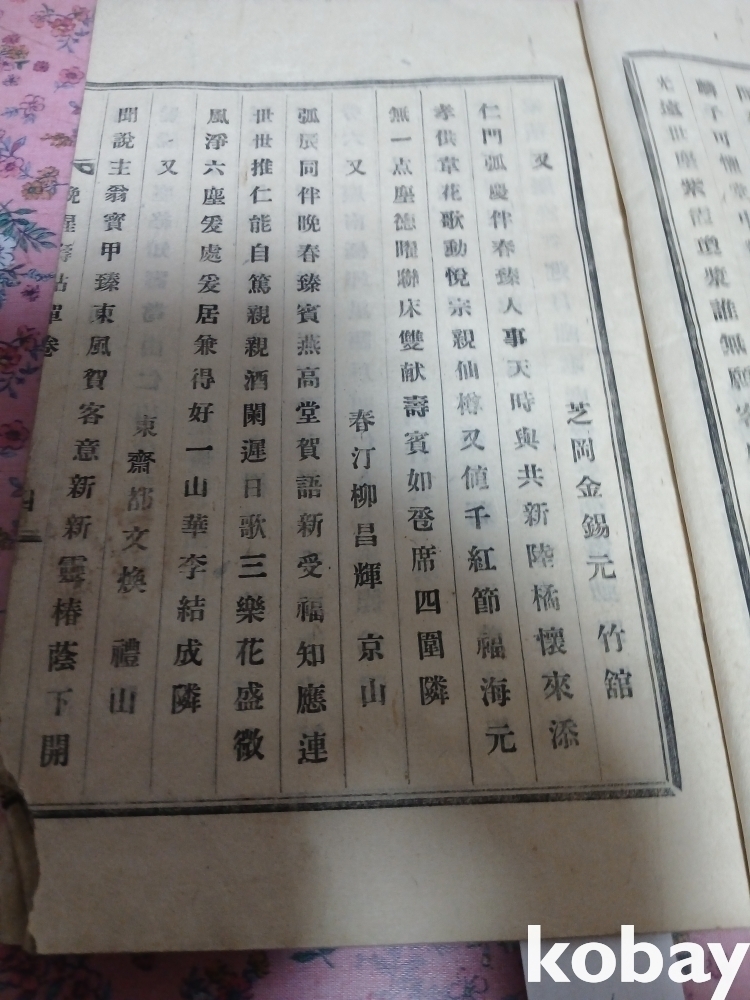 光遠世塵紫霞瓊漿誰無願
又 芝岡金錫元 竹舘
仁門弧慶伴春臻人事天時與共新陸橘懷來添
孝供萱花歌動悅宗親仙樽又値千紅節福海元
無一点塵德曜聯床雙献壽賓如卺席四圍隣
又 春汀柳昌輝 京山
弧辰同伴晚春臻賓燕高堂賀語新受福知應連
世世推仁能自篤親親酒闌遲日歌三樂花盛徵
風淨六塵爰處爰居兼得好一山華李結成隣
又 東齋都文煥 禮山
聞說主翁寶甲臻東風賀客意新新靈椿蔭下開
卷 四
kobay